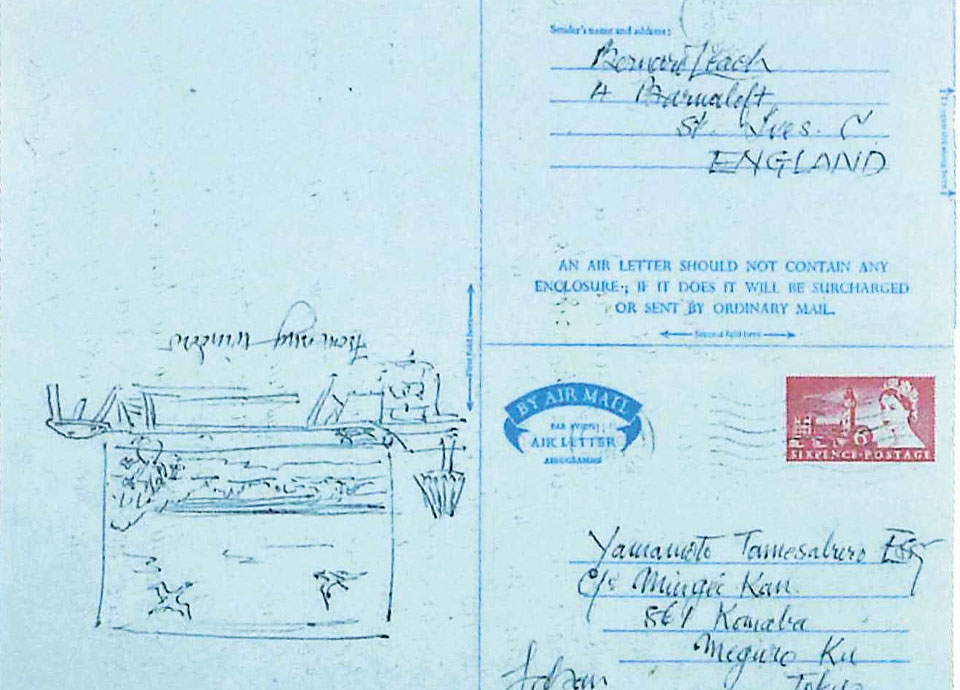 Sender's name and address:
Bernard Leach
4 Barnaloft
St. Ives. C
ENGLAND
AN AIR LETTER SHOULD NOT CONTAIN ANY
ENCLOSURE; IF IT DOES IT WILL BE SURCHARGED
OR SENT BY ORDINARY MAIL.
Second fold here
First fold here
from my window
BY AIR MAIL
PAR AVION
AIR LETTER
AEROGRAMME
6D
SIXPENCE·POSTAGE
Yamamoto Tamesaburo Esq
C/o Mingei Kan.
861 Komaba
Meguro Ku
Tokyo
Japan